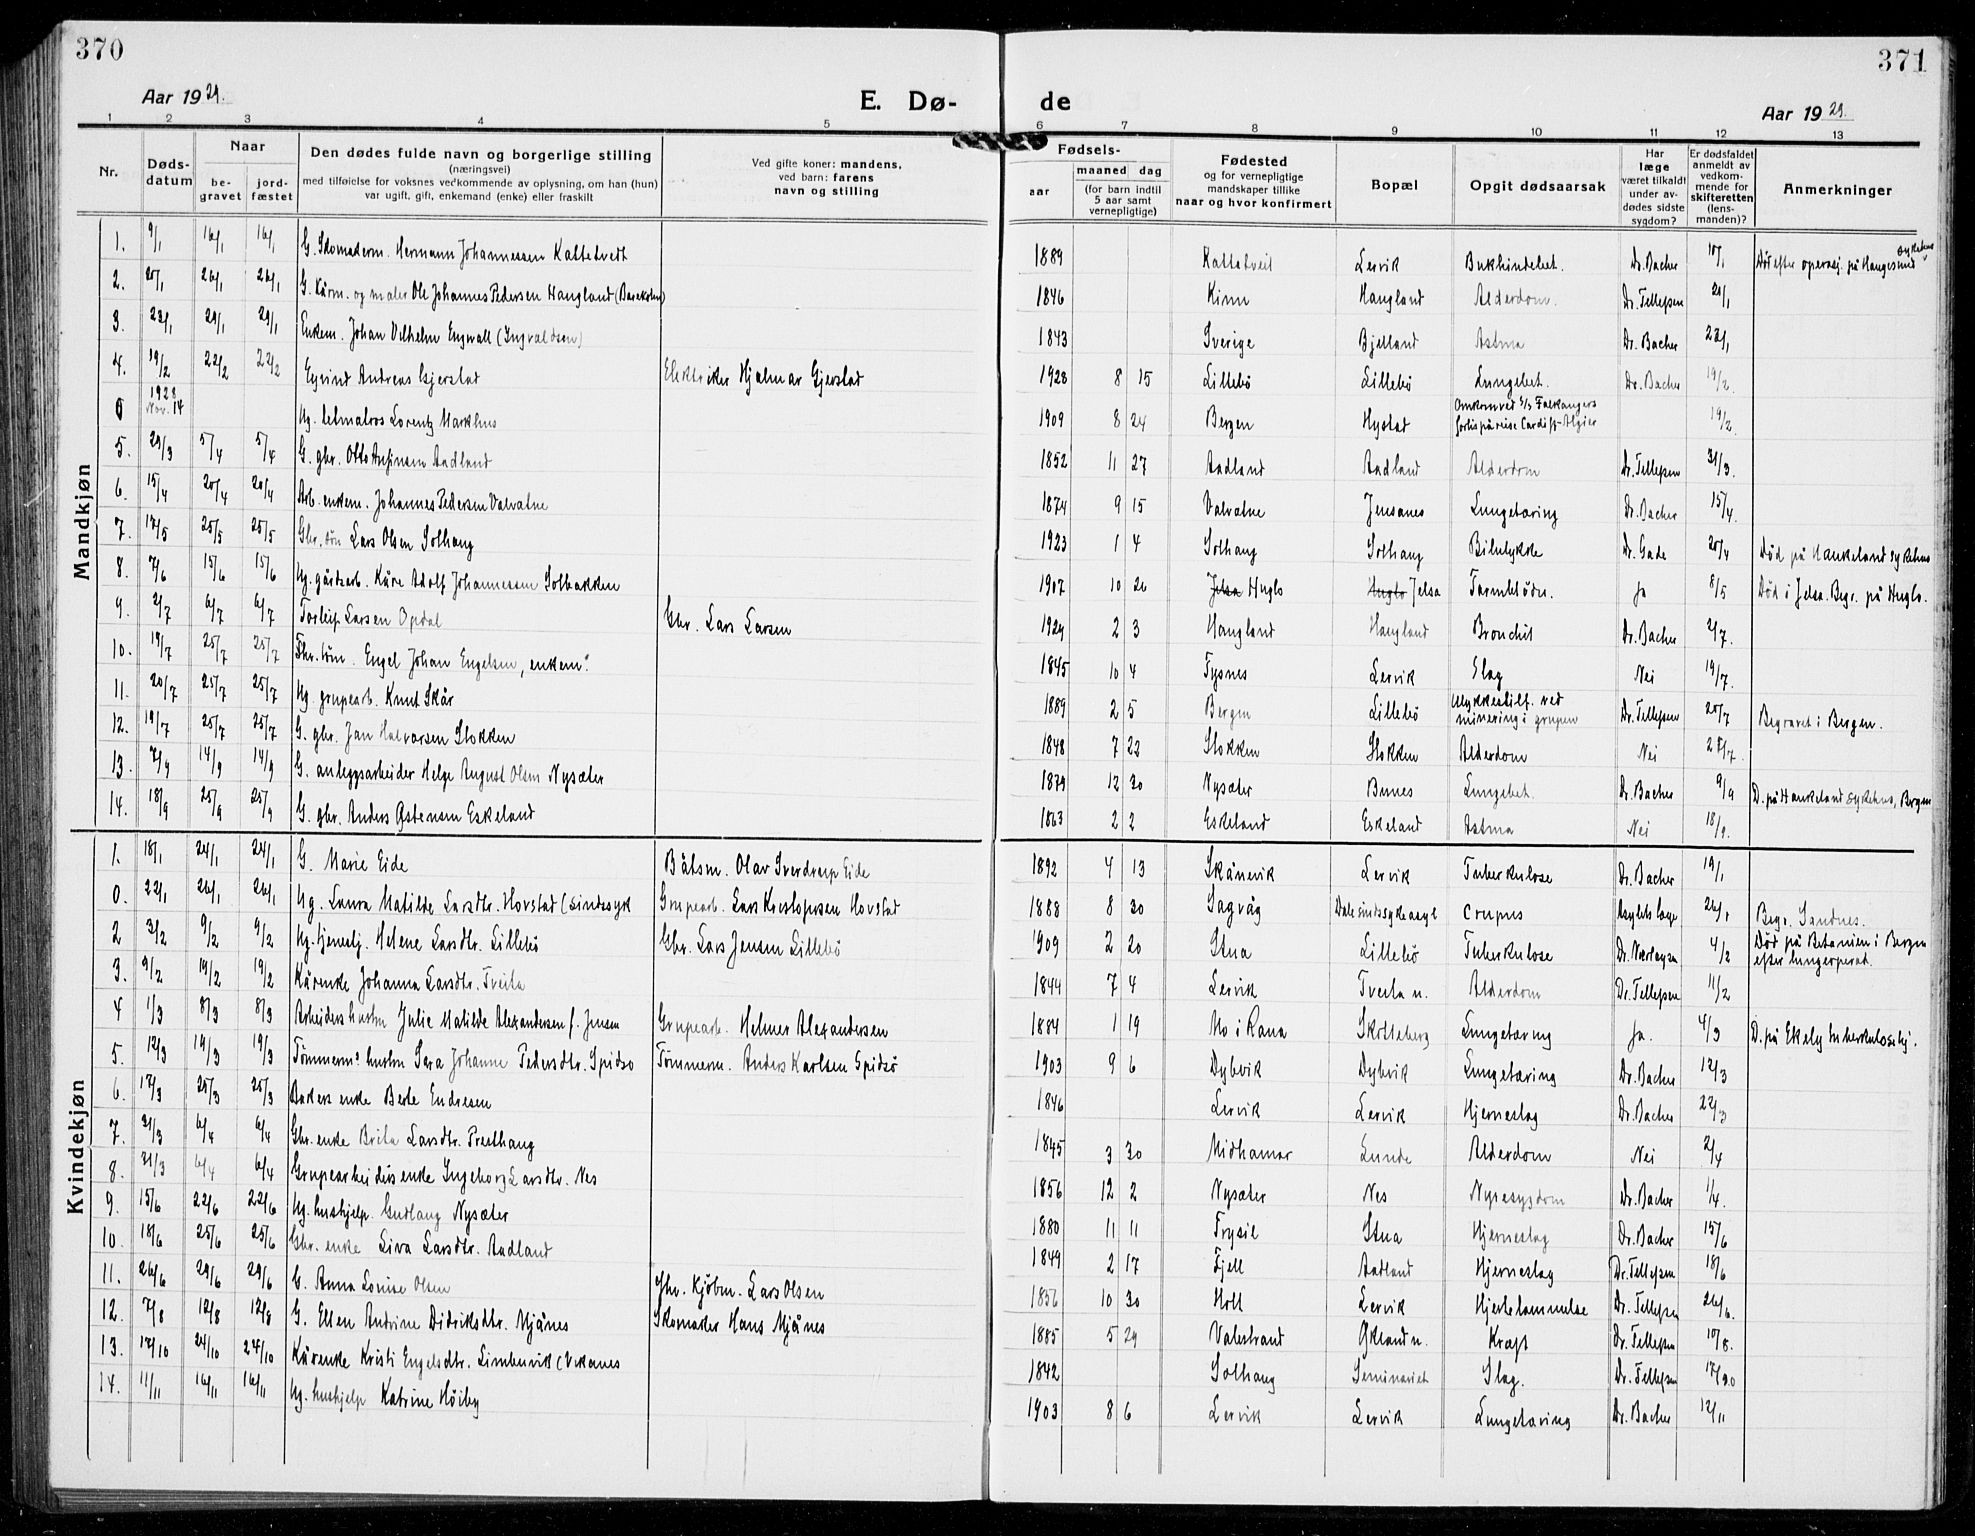 370
Aar 1929.
E. Dø-
1 2 3 4 5
Nr.
Døds-datum
Naar
be-gravet
jord-fæstet
Den dødes fulde navn og borgerlige stilling
(næringsvei)
med tilføielse for voksnes vedkommende av oplysning, om han (hun)
var ugift, gift, enkemand (enke) eller fraskilt
Ved gifte koner: mandens,
ved barn: farens
navn og stilling
Mandkjøn
1. 9/1 16/1 16/1 G. Skomakerm. Hermann Johannessen Kattetvedt
2. 20/1 26/1 26/1 G. Kårm. og maler Ole Johannes Pedersen Haugland
3. 23/1 29/1 29/1 Enkem. Johan Vilhelm Engwall (Ingvaldsen)
4. 19/2 22/2 22/2 Eyvind Andreas Gjerstad Elektriker Hjalmar Gjerstad
0 1928 Nov. 14 Ug. letmatros Lorentz Markhus
5. 29/3 5/4 5/4 G. gbr. Otto Aadland
6. 15/4 20/4 20/4 Arb. enkem. Johannes Pedersen Valvatne
7. 17/5 25/5 25/5 Gbr. søn Lars Olsen Solhaug
8. 7/6 15/6 15/6 Ug. gårdsarb. Kåre Adolf Johannessen Solbakken
9. 2/7 6/7 6/7 Torleip Larsen Opdal Gbr. Lars Larsen
10. 19/7 25/7 25/7 Engel Johan Engelsen, enkem.
11. 20/7 25/7 25/7 Ug. grupearb. Knut Skår
12. 19/7 25/7 25/7 G. gbr. Jan Halvorsen Stokken
13. 7/9 14/9 14/9 G. anleggsarbeider Helge August Olsen Nysæter
14. 18/9 25/9 25/9 G. gbr. Anders Østensen Eskeland
Kvindekjøn
1. 18/1 24/1 24/1 G. Marie Eide Båtsm. Olav Sverdrup Eide
0. 22/1 26/1 26/1 Ug. Laura Matilde Larsdtr. Hovstad (Sindssyk Grupearb. Lars Kristofersen Hovstad
2 3/2 9/2 9/2 Ug. tjenestj. Helene Larsdtr. Lillebø Gbr. Lars Jensen Lillebø
3. 9/2 19/2 19/2 Kårenke Johanna Larsdtr. Tveita
4 1/3 8/3 8/3 Arbeiders hustru Julie Matilde Alexandersen f. Jensen Grupearb. Helmer Alexandersen
5. 12/3 19/3 19/3 Tømmerm.s hustru Sara Johanne Pedersdtr. Spidsø Tømmerm. Anders Karlsen Spidsø
6. 17/3 25/3 25/3 Bakers enke Berte Endresen
7. 31/3 6/4 6/4 Gbr. enke Brita Larsdtr. Presthaug
8. 31/3 6/4 6/4 Grupearbeiders enke Ingeborg Larsdtr. Nes
9. 15/6 22/6 22/6 Ug. hushjelp Gudlaug Nysæter
10. 18/6 25/6 25/6 Gbr. enke Siva Larsdtr. Aadland
11. 26/6 29/6 29/6 G. Anna Lovise Olsen Fhv. Kjøbm. Lars Olsen
12. 7/8 12/8 12/8 G. Ellen Andrine Didriksdtr. Mjånes Skomaker Hans Mjånes
13. 17/10 24/10 24/10 Kårenke Kristi Engelsdtr. Limbuvik (Vikanes
14. 11/11 16/11 16/11 Ug. hushjelp Katrine Høiby
371
de
Aar 1929.
6 7 8 9 10 11 12 13
Fødsels-
aar
maaned dag
(for barn indtil
5 aar samt
vernepligtige)
Fødested
og for vernepligtige
mandskaper tillike
naar og hvor konfirmert
Bopæl
Opgit dødsaarsak
Har
læge
været tilkaldt
under av-
dødes sidste
sygdom?
Er dødsfaldet
anmeldt av
vedkom-
mende for
skifteretten
(lens-
manden)?
Anmerkninger
1889 Kattetveit Lervik Bukhindebet. Dr. Bacher 10/1 Død efter operasj. på Haugesund sykehus
1846 Kinn Haugland Alderdom. Dr. Tellefsen 21/1
1843 Sverige Bjelland Astma Dr. Bacher 23/1
1928 8 15 Lillebø Lillebø Lungebet. Dr. Bacher 19/2
1909 8 24 Bergen Hystad Omkom ved s/s Falkangers
forlis på reise Cardiff-Algier 19/2.
1852 11 27 Aadland Aadland Alderdom Dr. Tellefsen 31/3.
1874 9 15 Valvatne Jensanes Lungetæring Dr. Bacher 15/4.
1923 1 4 Solhaug Solhaug Bilulykke Dr. Gade 20/4 Død på Haukeland sykehus
1907 10 26 Jelsa Huglo Huglo Jelsa Tarmblødn. Ja 8/5 Død i Jelsa. Begr. på Huglo.
1929 2 3 Haugland Haugland Bronchit Dr. Bacher 2/7.
1845 10 4 Tysnes Lervik Slag Nei 19/7.
1889 2 5 Bergen Lillebø Ulykkestilf. ved
minering i grupen Dr. Tellefsen 20/7 Begravet i Bergen.
1848 7 22 Stokken Stokken Alderdom Nei
1879 12 30 Nysæter Bunes Lungebet. Dr. Bacher 9/9 D. på Haukeland sykehus, Bergen
1863 2 2 Eskeland Eskeland Astma Nei 18/9.
1892 4 13 Skånevik Lervik Tuberkulose Dr. Bacher 19/1
1888 8 30 Sagvåg Dale sindssykeasyl Crupus Asylets læge 26/1 Begr. Sandnes.
1909 2 20 Stua Lillebø Tuberkulose 4/2 Død på Betanien i Bergen
efter lungeoperat.
1844 7 4 Lervik Tveita n. Alderdom Dr. Tellefsen 11/2
1884 1 19 Mo i Rana Skotteberg Lungetæring Ja. 4/3 D. på Ekely tuberkulosehj.
1903 9 6 Dybvik Dybvik Lungetæring Dr. Bacher 12/3
1846 Lervik Lervik Hjerneslag Dr. Bacher 22/3
1845 3 30 Midhamar Lunde Alderdom Nei 2/4
1856 12 2 Nysæter Nes Nyresygdom Dr. Bacher 1/4.
1880 11 11 Trysil Stua Hjerneslag Dr. Bacher 15/6
1849 2 17 Fjell Aadland Hjerneslag Dr. Tellefsen 18/6
1856 10 30 Holt Lervik Hjertelammelse Dr. Tellefsen 26/6.
1885 5 29 Valestrand Økland n. Kræft Dr. Tellefsen 10/8.
1842 Solhaug Seminariet Slag. Dr. Tellefsen
1903 8 6 Lervik Lervik Lungetæring Dr. Bacher 12/11